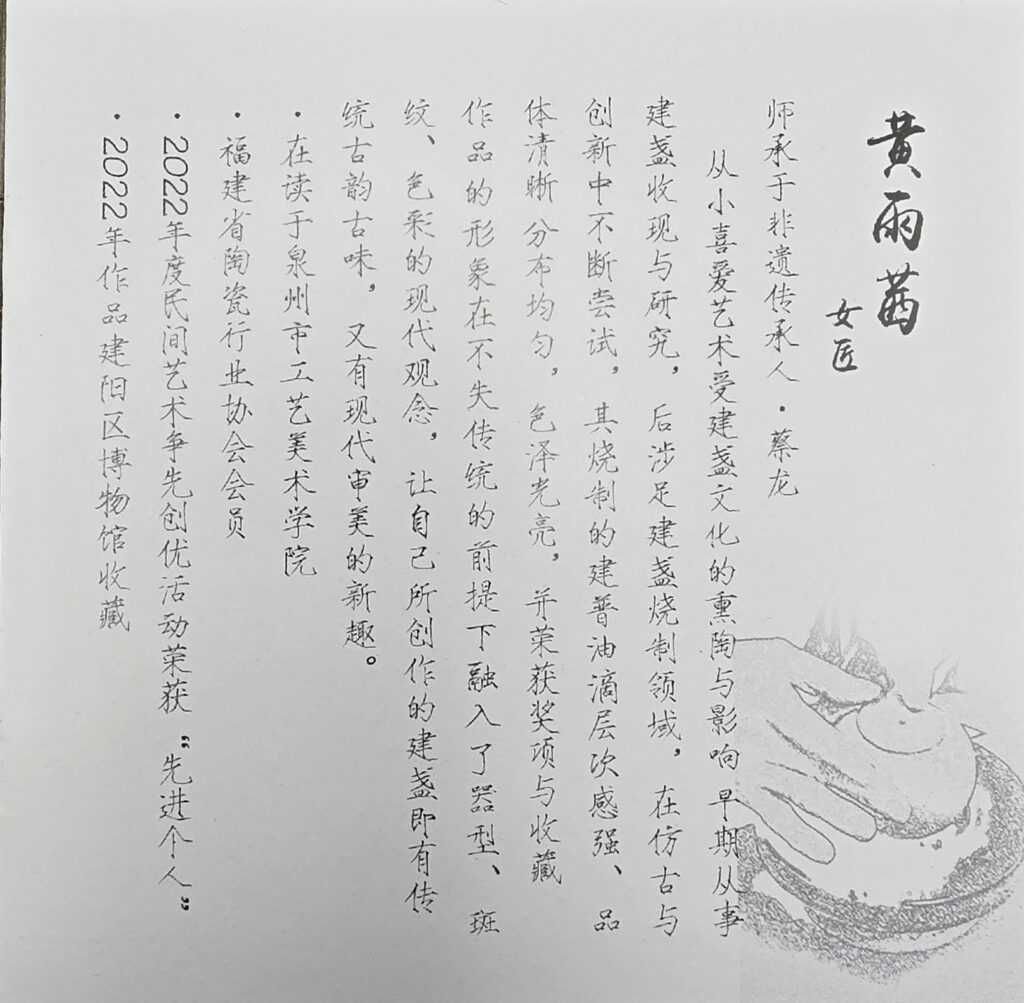 黄雨茜
女匠
师承于非遗传承人·蔡龙
从小喜爱艺术受建盏文化的熏陶与影响 早期从事
建盏收现与研究，后涉足建盏烧制领域，在仿古与
创新中不断尝试，其烧制的建普油滴层次感强、品
体清晰分布均匀，色泽光亮，并荣获奖项与收藏
作品的形象在不失传统的前提下融入了器型、斑
纹、色彩的现代观念，让自己所创作的建盏即有传
统古韵古味，又有现代审美的新趣。
·在读于泉州市工艺美术学院
·福建省陶瓷行业协会会员
·2022年度民间艺术争先创优活动荣获“先进个人”
·2022年作品建阳区博物馆收藏